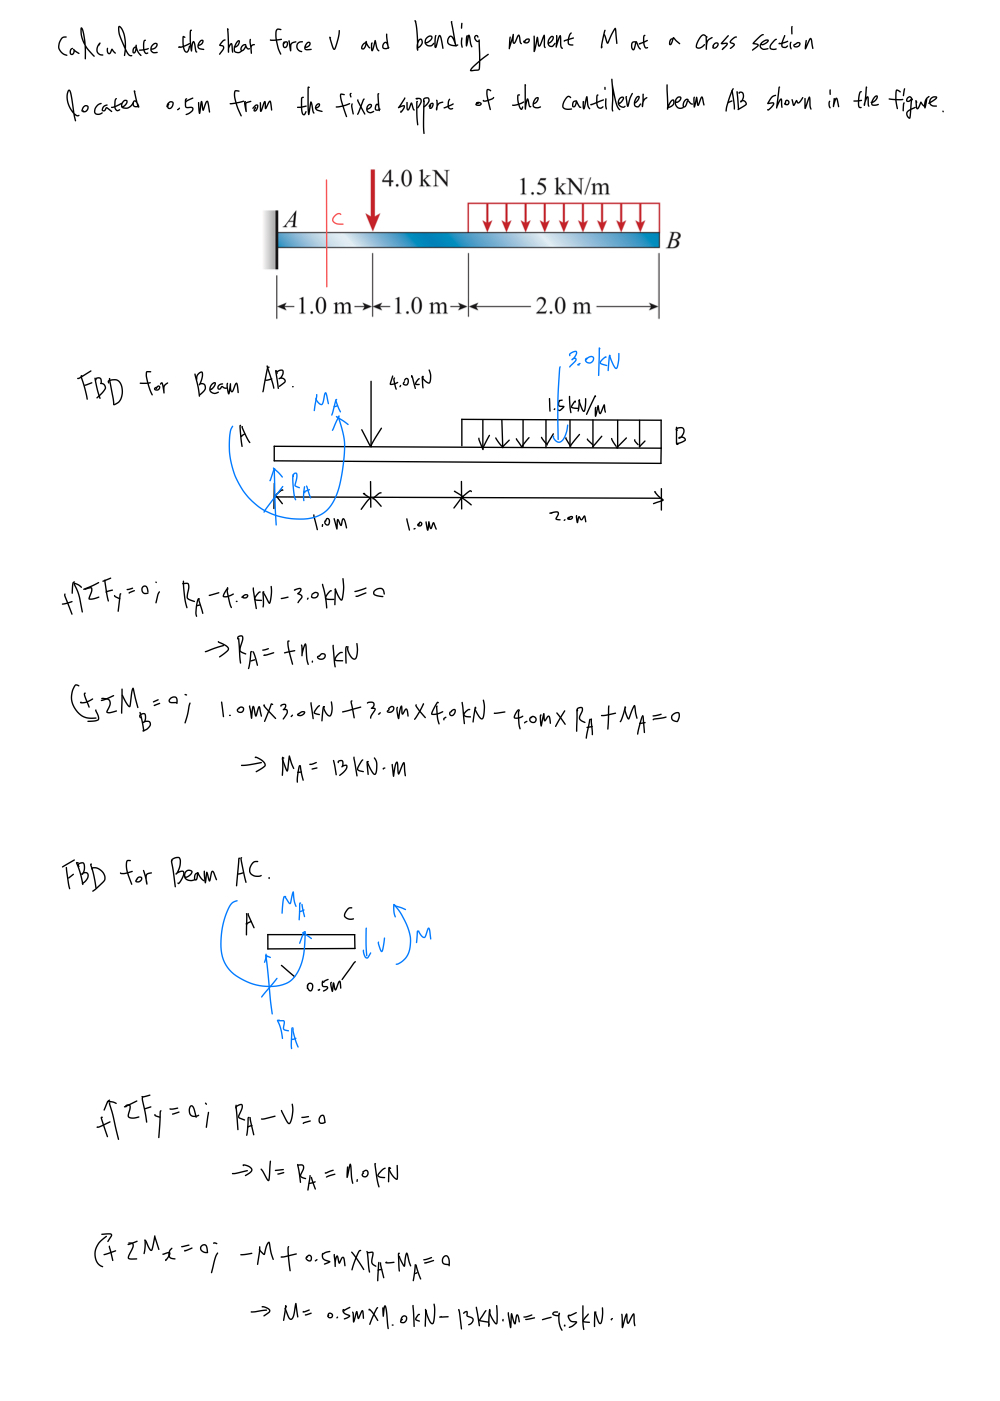 Calculate the shear force V and bending moment M at a cross section
located 0.5m from the fixed support of the cantilever beam AB shown in the figure.
4.0 kN
1.5 kN/m
A
C
B
1.0 m
1.0 m
2.0 m
3.0kN
FBD for Beam AB.
4.0kN
M_A
1.5kN/m
A
B
R_A
1.0m
1.0m
2.0m
+↑ΣF_y=0; R_A-4.0kN-3.0kN=0
→R_A=+7.0kN
↺+ΣM_B=0; 1.0m×3.0kN+3.0m×4.0kN-4.0m×R_A+M_A=0
→ M_A= 13kN·m
FBD for Beam AC.
M_A
A
C
V
M
0.5m
R_A
+↑ΣF_y=0; R_A-V=0
→V= R_A = 7.0kN
↻+ΣM_x=0; -M+0.5m×R_A-M_A=0
→ M= 0.5m×7.0kN-13kN·m=-9.5kN·m